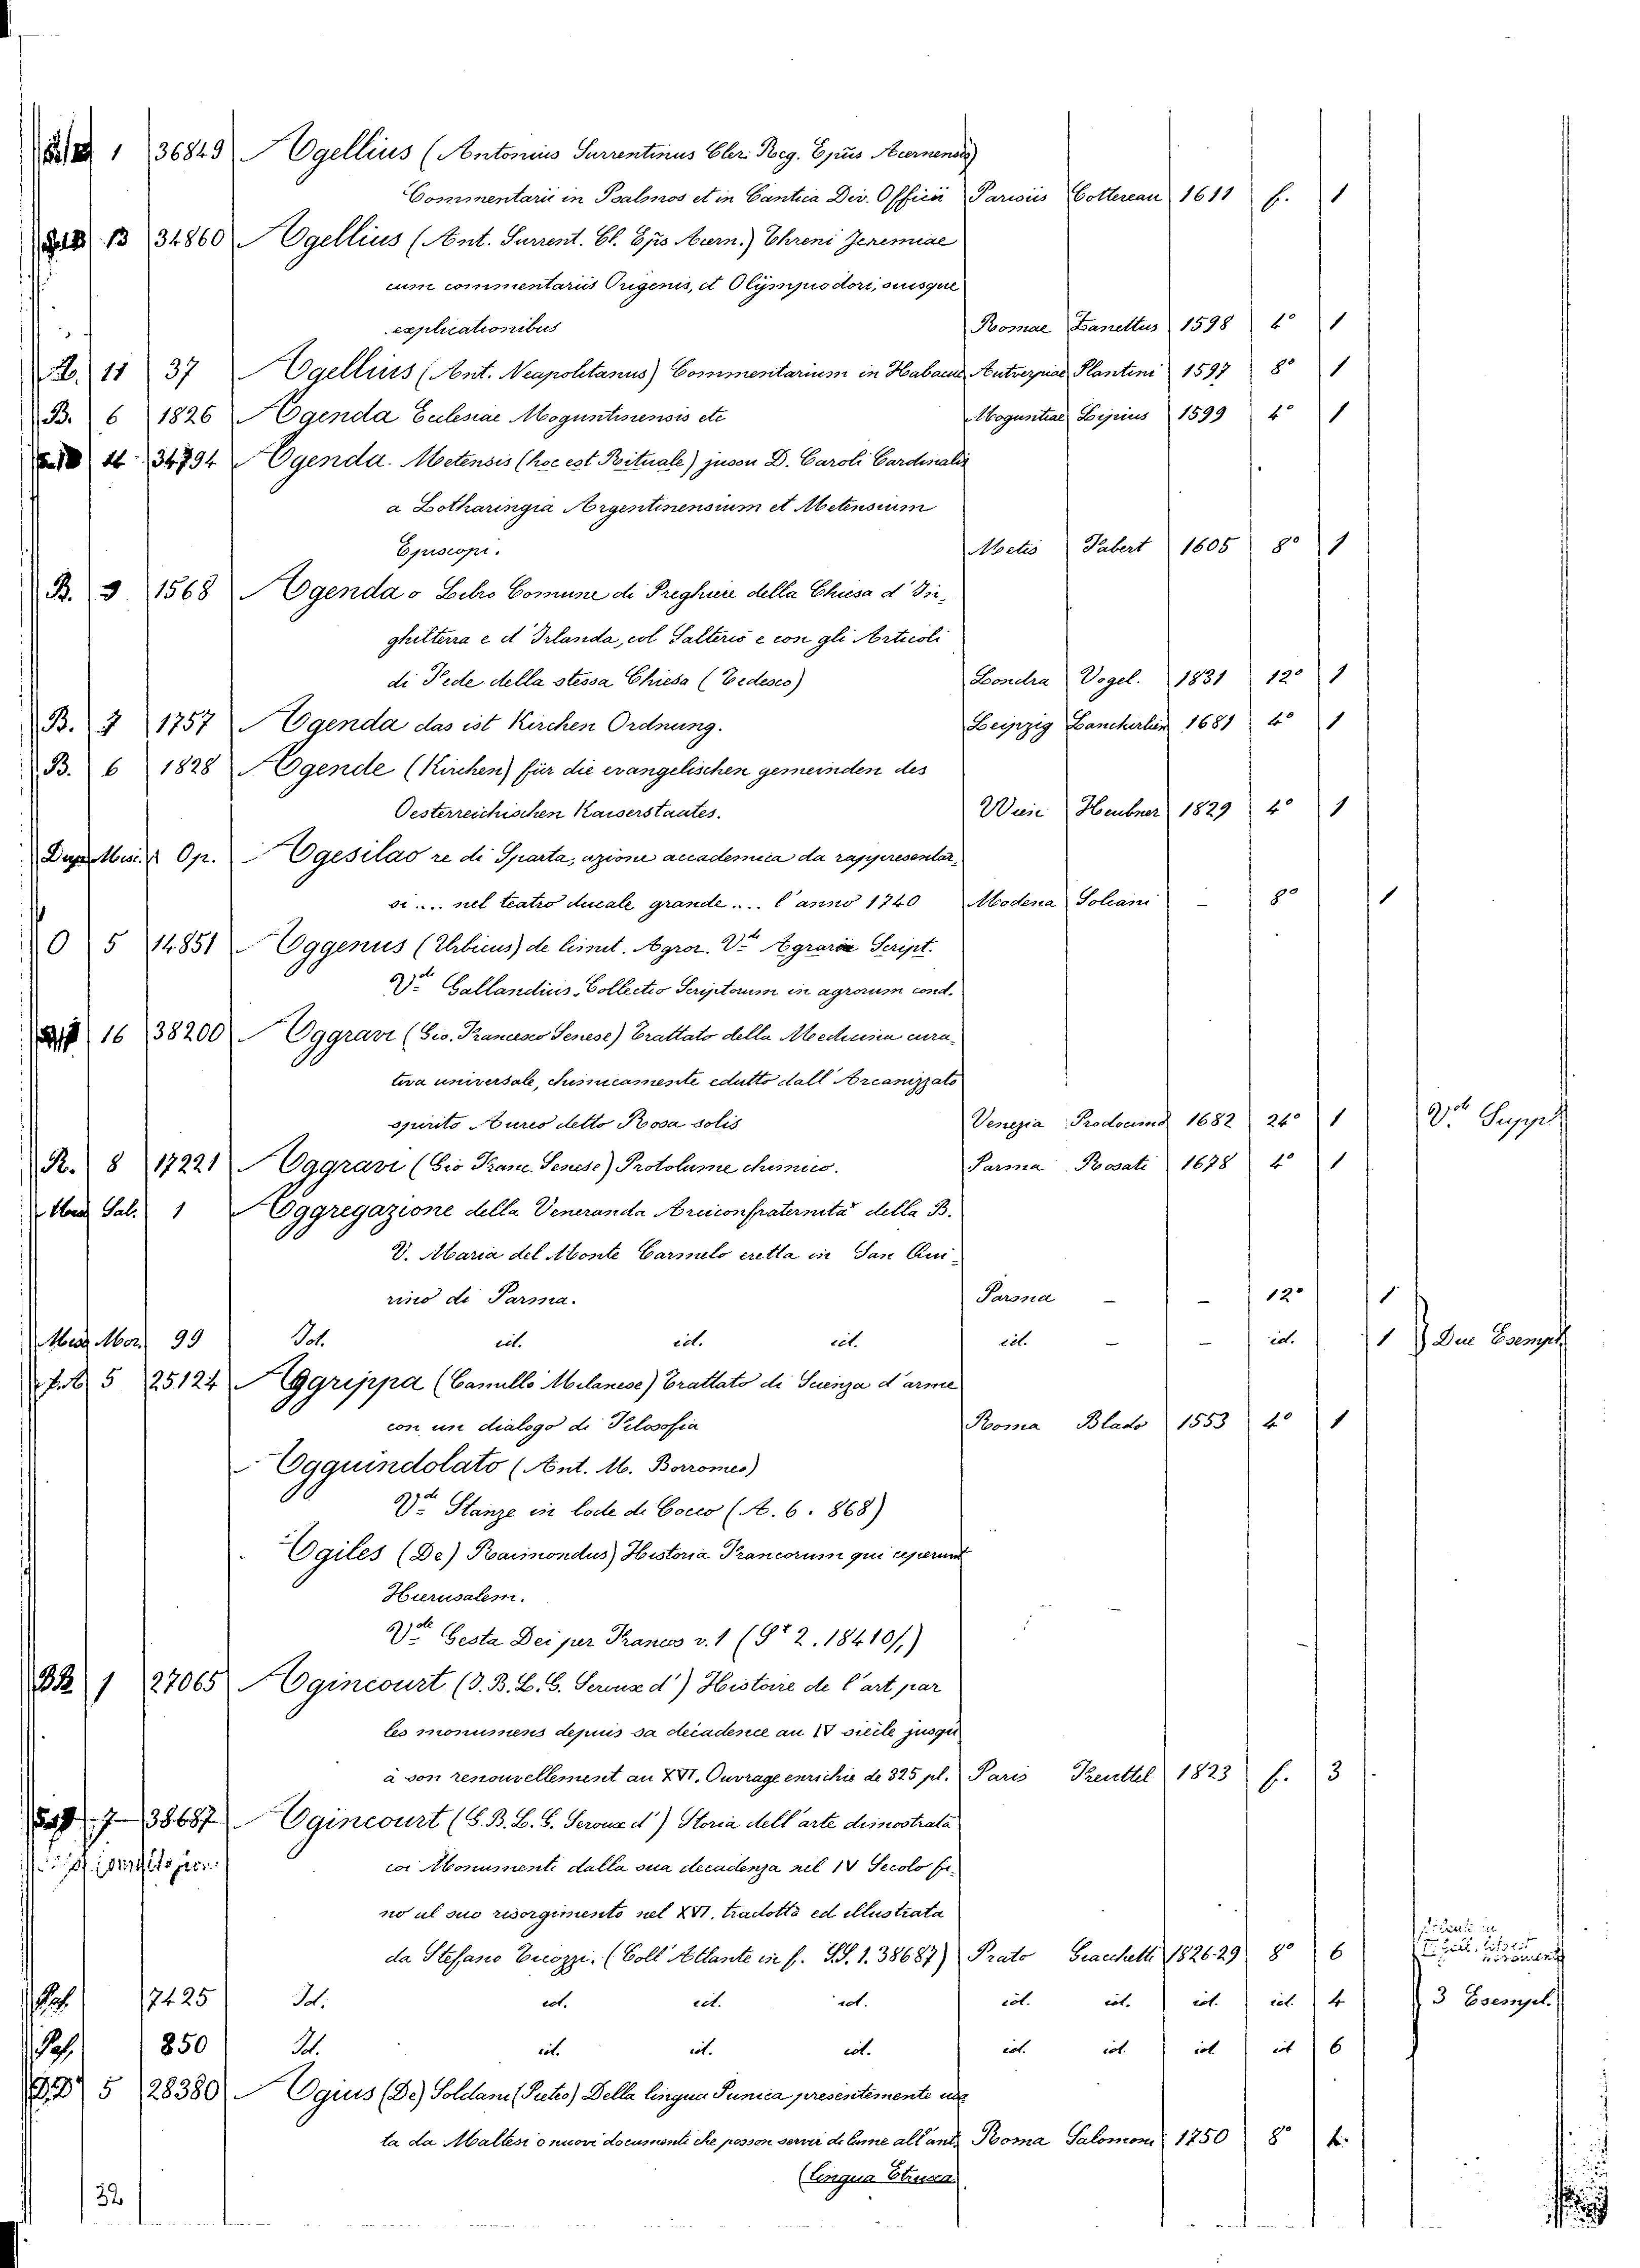 1 36849 Agellius (Antonius Surrentinus Cler. Reg. Epus Acernensis)
Commentarii in Psalmos et in Cantica Div. Officii Parisiis Cottereau 1611 f. 1
13 34860 Agellius (Ant. Surrent. Cl. Eps Acern.) Threni Jeremiae
cum commentariis Origenis, et Olÿmpiodori, suisque
explicationibus Romae Zanettus 1598 4° 1
11 37 Agellius (Ant. Neapolitanus) Commentarium in Habacuc Antverpiae Plantini 1597 8° 1
B. 6 1826 Agenda Eclesiae Moguntinensis etc Moguntiae Lipius 1599 4° 1
34794 Agenda Metensis (hoc est Rituale) jussu D. Caroli Cardinalis
a Lotharingia Argentinensium et Metensium
Episcopi. Metis Fabert 1605 8° 1
B. 3 1568 Agenda o Libro Comune di Preghiere della Chiesa d'In-
ghilterra e d'Irlanda, col Salterio e con gli Articoli
di Fede della stessa Chiesa (Tedesco) Londra Vogel. 1831 12° 1
B. 7 1757 Agenda das ist Kirchen Ordnung. Leipzig 1681 4° 1
B. 6 1828 Agende (Kirchen) für die evangelischen gemeinden des
Oesterreichischen Kaiserstaates. Wien Heubner 1829 4° 1
Op. Agesilao re di Sparta, azione accademica da rappresentar-
si .... nel teatro ducale grande .... l'anno 1740 Modena Soliani - 8° 1
O 5 14851 Aggenus (Urbicus) de limit. Agror. V.de Agrariae Script.
V.de Gallandius, Collectio Scriptorum in agrorum cond.
16 38200 Aggravi (Gio. Francesco Senese) Trattato della Medicina cura-
tiva universale, chimicamente edutto dall'Arcanizzato
spirito Aureo detto Rosa solis Venezia Prodocimo 1682 24° 1 V.de Suppl
R. 8 17221 Aggravi (Gio Franc. Senese) Protolume chimico. Parma Rosati 1678 4° 1
Sal. 1 Aggregazione della Veneranda Arciconfraternita della B.
V. Maria del Monte Carmelo eretta in San Qui-
rino di Parma. Parma - - 12° 1
Misc Mor 99 Id. id. id. id. id. - - id. 1 Due Esempl
5 25124 Aggrippa (Camillo Milanese) Trattato di Scienza d'arme
con un dialogo di Filosofia Roma Blado 1553 4° 1
Agguindolato (Ant. M. Borromeo)
V.de Stanze in lode di Cocco (A. 6. 868)
Agiles (De) Raimondus) Historia Francorum qui ceperunt
Hierusalem.
V.de Gesta Dei per Francos v. 1 (Gt 2. 18410/1)
BB 1 27065 Agincourt (J. B. L. G. Seroux d') Histoire de l'art par
les monumens depuis sa décadence au IV siecle jusqu
à son renouvellement au XVI. Ouvrage enrichie de 325 pl. Paris Treuttel 1823 f. 3
7 38687 Agincourt (G. B. L. G. Seroux d') Storia dell'arte dimostrata
coi Monumenti dalla sua decadenza nel IV Secolo fi-
no al suo risorgimento nel XVI. tradotta ed illustrata
da Stefano Ticozzi. (Coll'Atlante in f. SS. 1. 38687) Prato Giacchetti 1826-29 8° 6
7425 Id. id. id. id. id. id. id. id. 4 3 Esempl.
850 Id. id. id. id. id. id. id. id 6
5 28380 Agius (De) Soldani (Pietro) Della lingua Punica presentemente usa
ta da Maltesi o nuovi documenti che posson servir di lume all'antic Roma Salomoni 1750 8° 1.
(lingua Etrusca)
32